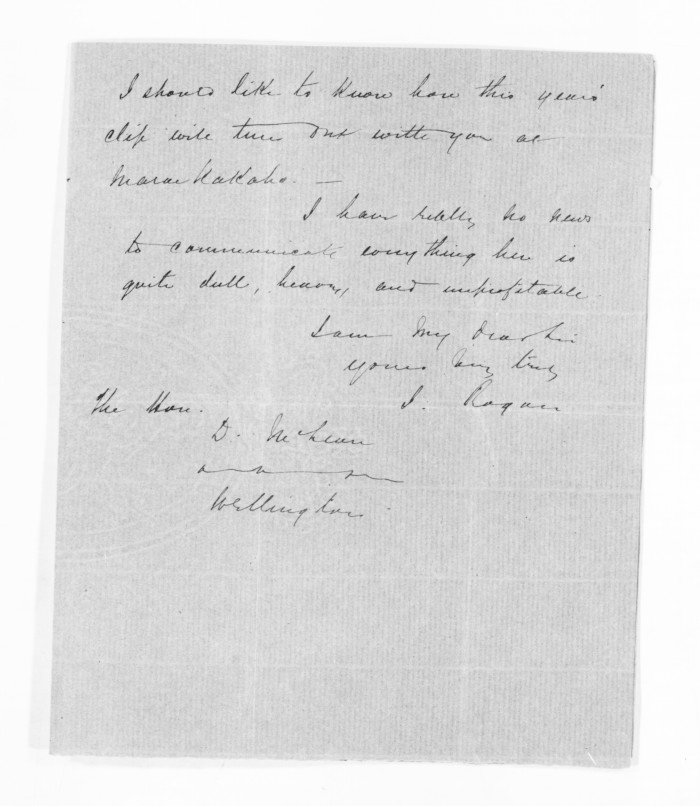 I should like to know how this years'
clip will turn out with you at
Maraekakaho. —
I have really no news
to communicate everything here is
quite dull, heavy, and unprofitable.
I am My Dear Sir
yours very truly
J. Rogan
The Hon.
D. McLean
Wellington